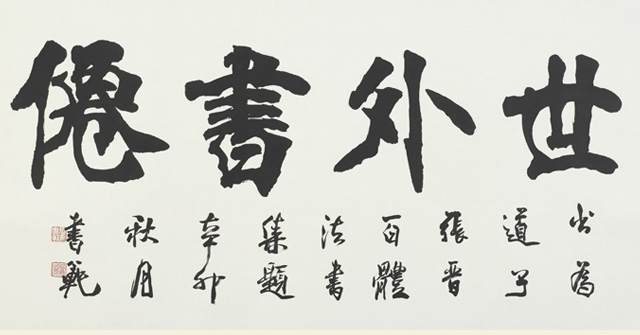 世外書僊
為
道子
張晋
百體
法書
集題
辛卯
秋月
書範